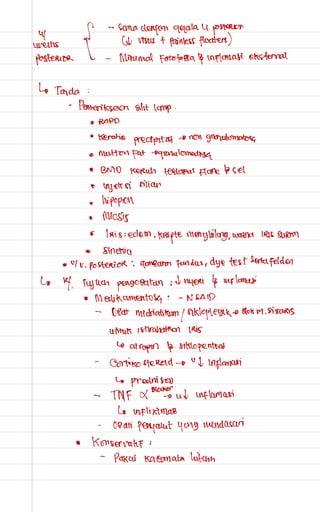 u/ uveitis posterior
- Sama dengan gejala U posterior
(↓ visus + Painless floaters)
- Minimal Fotofobia & inflamasi eksternal
↳ Tanda :
- Pemeriksaan slit lamp.
• RAPD
• Keratic precipitat → non granulomatosa,
• mutton Fat → granulomatosa
• BMD keruh terdapat Flare & sel
• injeksi siliar
• hipopion
• Miosis
• Iris : edem, kripte menghilang, warna iris suram
• Sinekia
• U/ U. Posterior : gambaran fundus, dye test
↳ Tx/ Tujuan pengobatan : ↓ nyeri & inflamasi
• Medikamentosa : - NSAID
- Obat midriatikum / sikloplegik → Blok M. Siliaris
untuk istirahatkan iris
↳ atropin & siklopentolat
- Cortikosteroid → u/ ↓ inflamasi
↳ prednison
- TNF α Blocker → u/ ↓ inflamasi
↳ infliximab
- Obati Penyakit yang mendasari
• Konservatif :
- Pakai kacamata hitam